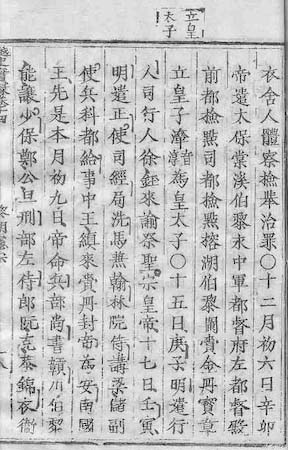 立皇
太子
衣舍人體察檢舉治罪○十二月初六日辛卯
帝遣太保棠溪伯黎永中軍都督府左都督殿
前都檢點司都檢點榕湖伯黎蘭賫命丹寶章
立皇子㵮音爲皇太子○十五日庚子明遣行
人司行人徐鈺來諭祭聖宗皇帝十七日壬寅
明遣正使司經局洗馬兼翰林院侍講梁儲副
使兵科都給事中王縝來賫册封帝爲安南國
王先是本月初九日帝命兵部尚書頴川伯黎
能讓少保鄭公旦刑部左侍郎阮克恭錦衣衞